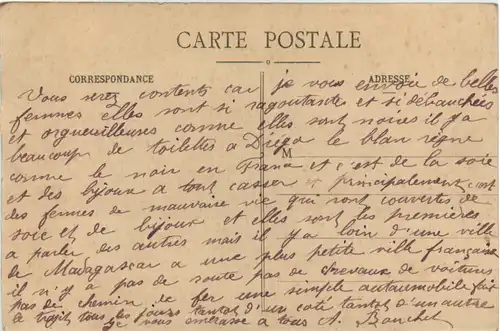 CARTE POSTALE
CORRESPONDANCE
ADRESSE
M
Vous serez contents car je vous envoie de belles
femmes elles sont si ragoutantes et si débauchées
et orgueilleuses comme elles sont noires il y a
beaucoup de toilettes a Diego le blan règne
comme le noir en France et c'est de la soie
et des bijoux a tout casser principalement c'est
des femmes de mauvaise vie qui sont couvertes de
soie et de bijoux et elles sont les premières
a parler des autres mais il y a loin d'une ville
de Madagascar a une plus petite ville française
il n'y a pas de route pas de chevaux de voitures
pas de chemin de fer une simple automobile fait
le trajet tous les jours tantot d'un coté tantot d'un autre
je vous embrasse a tous A. Bouchet